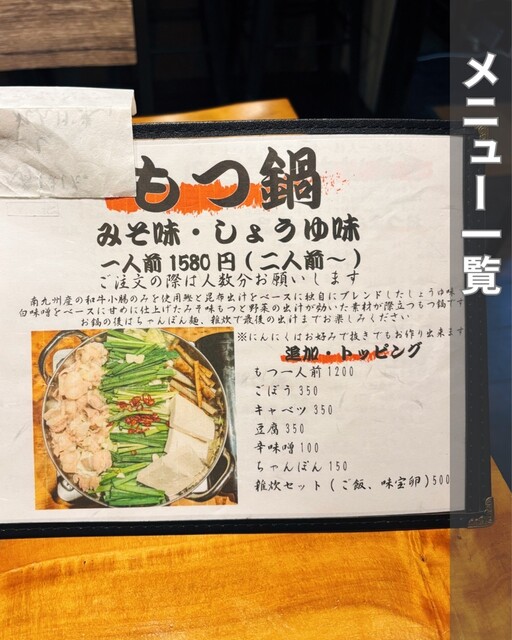 メニュー一覧
もつ鍋
みそ味・しょうゆ味
一人前1580円(二人前～)
ご注文の際は人数分お願いします
南九州産の和牛小腸のみを使用鰹と昆布出汁をベースに独自にブレンドしたしょうゆ味
白味噌をベースに甘めに仕上げたみそ味もつと野菜の出汁が効いた素材が際立つもつ鍋です
お鍋の後はちゃんぽん麺、雑炊で最後の出汁までお楽しみください
※にんにくはお好みで抜きでもお作り出来ます
追加・トッピング
もつ一人前1200
ごぼう350
キャベツ350
豆腐350
辛味噌100
ちゃんぽん150
雑炊セット(ご飯、味宝卵)500